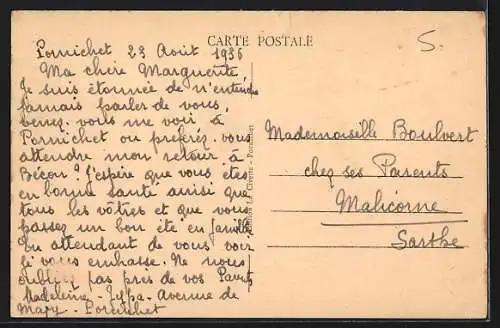 CARTE POSTALE
5.
Pornichet 23 Août 1936
Ma chère Marguerite
Je suis étonnée de n'entendre
jamais parler de vous,
venez-vous me voir à
Pornichet ou préférez-vous
attendre mon retour à
Bécon? J'espère que vous êtes
en bonne santé ainsi que
tous les vôtres et que vous
passez un bon été en famille
En attendant de vous voir
je vous embrasse. Ne nous
oubliez pas près de vos Parents
Madeleine - Avenue de
Mary - Pornichet
Mademoiselle Boulvert
chez ses Parents
Malicorne
Sarthe